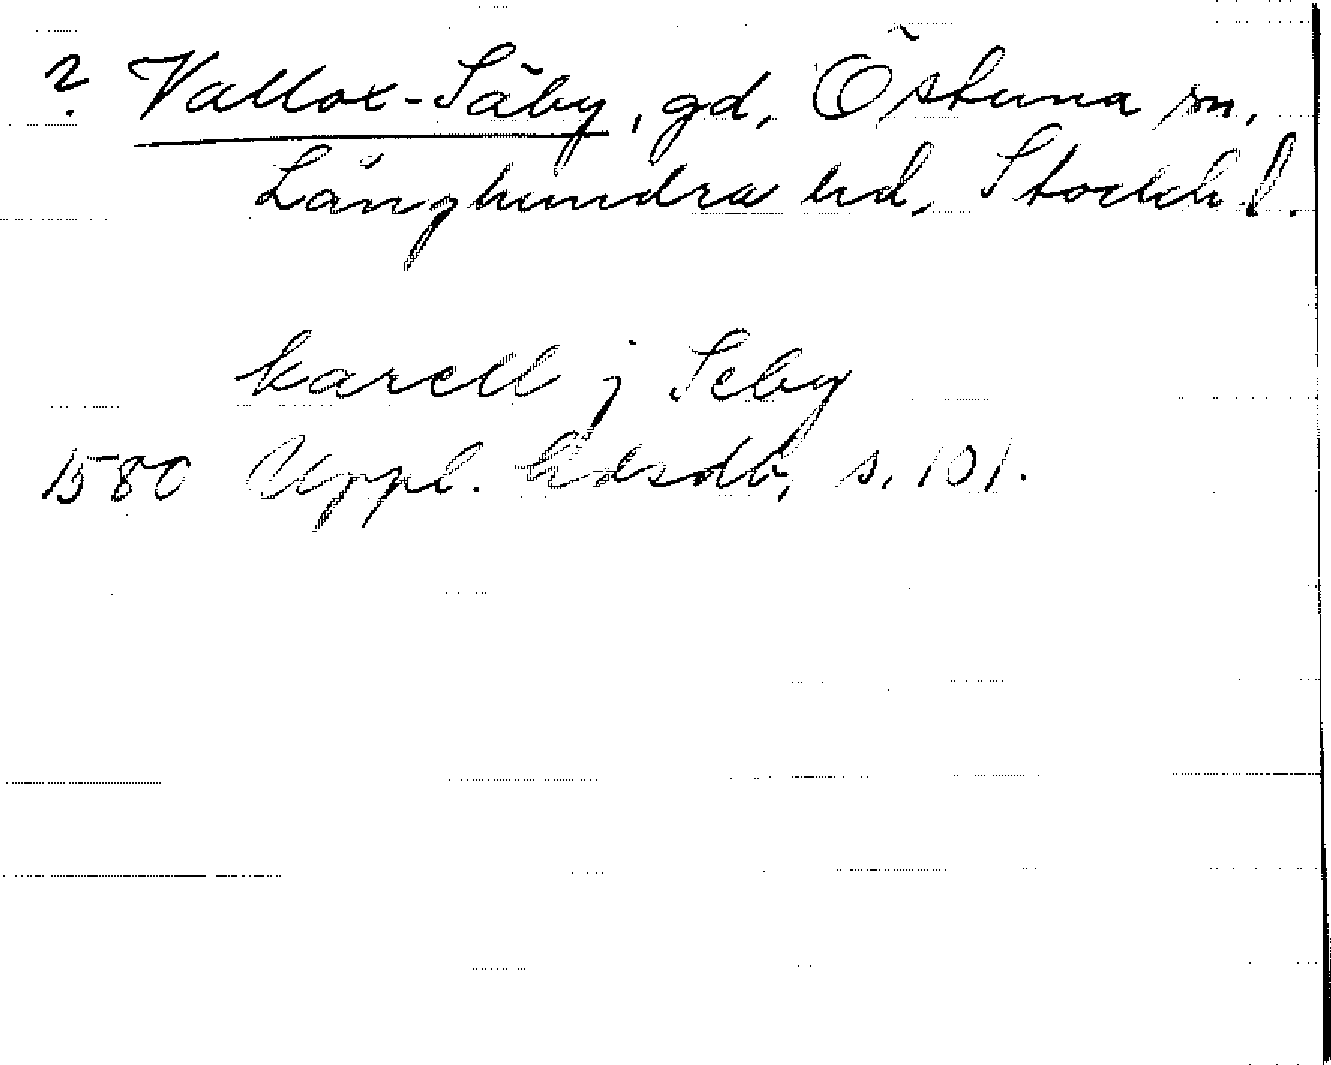 ? Vallox-Säby, gd, Östuna sn,
Långhundra hd, Stockh l.
karell j Seby
1580 Uppl. hdsdb, s. 101.